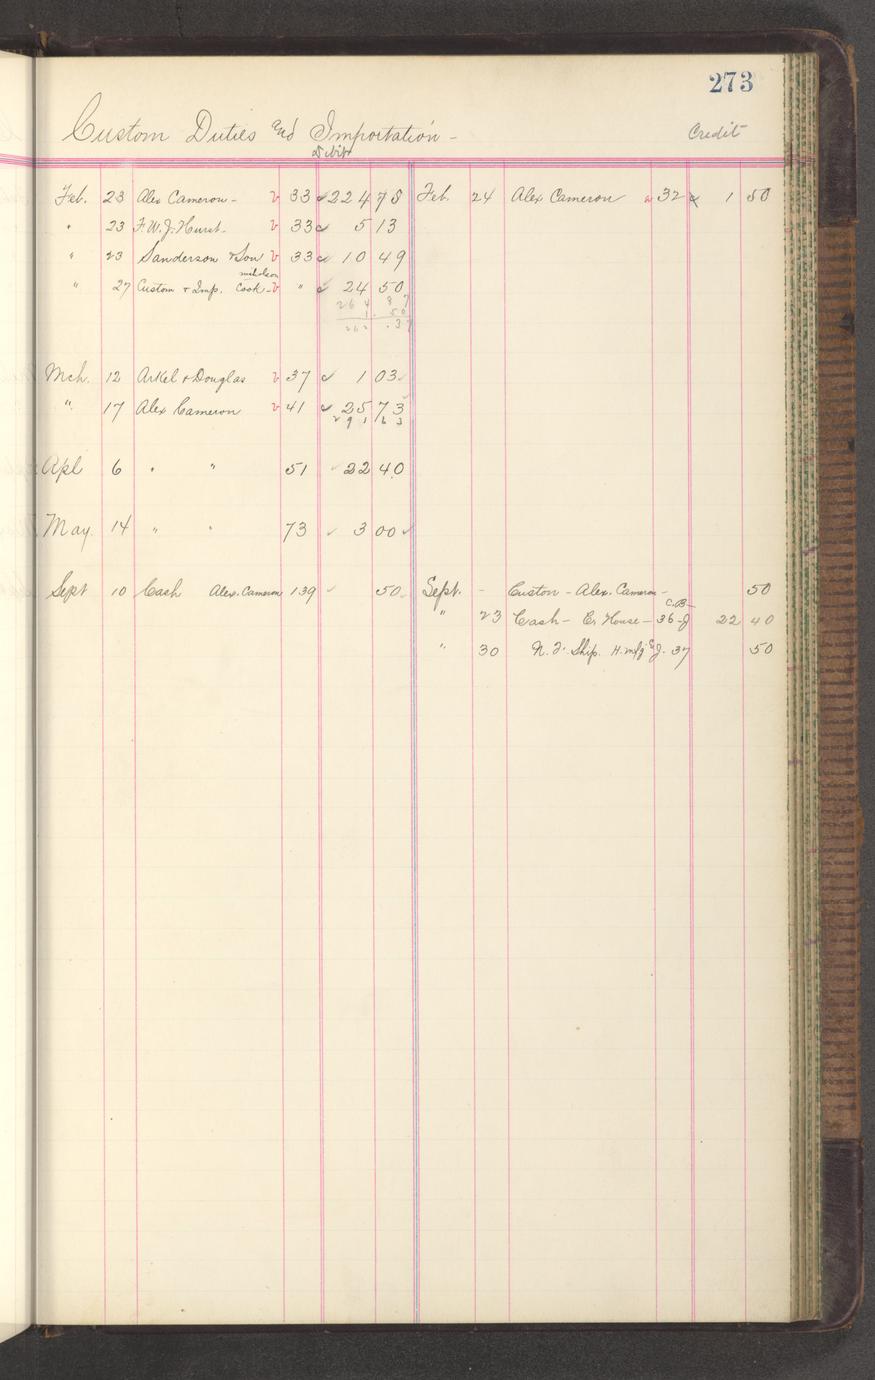 273
Custom Duties and Importation -
Debit
Credit
Feb. 23 Alex Cameron - v 33 ✓ 224 78 Feb. 24 Alex Cameron 32 1 50
" 23 F. W. J. Hurst - v 33 ✓ 5 13
" 23 Sanderson & Son v 33 ✓ 10 49
nicholson
" 27 Custom & Imp. Cook - v " ✓ 24 50
264 87
1. 50
262 .37
Mch. 12 Arkel & Douglas v 37 ✓ 1 03
" 17 Alex Cameron v 41 ✓ 25 73
29 1 6 3
Apl 6 " " 51 ✓ 22 40
May. 14 " " 73 ✓ 3 00 ✓
Sept 10 Cash Alex. Cameron 139 ✓ 50 Sept. - Custom - Alex. Cameron - 50
C.B-
" 23 Cash - House - 36-J 22 40
" 30 Ship. H. mfg Co J. 37 50